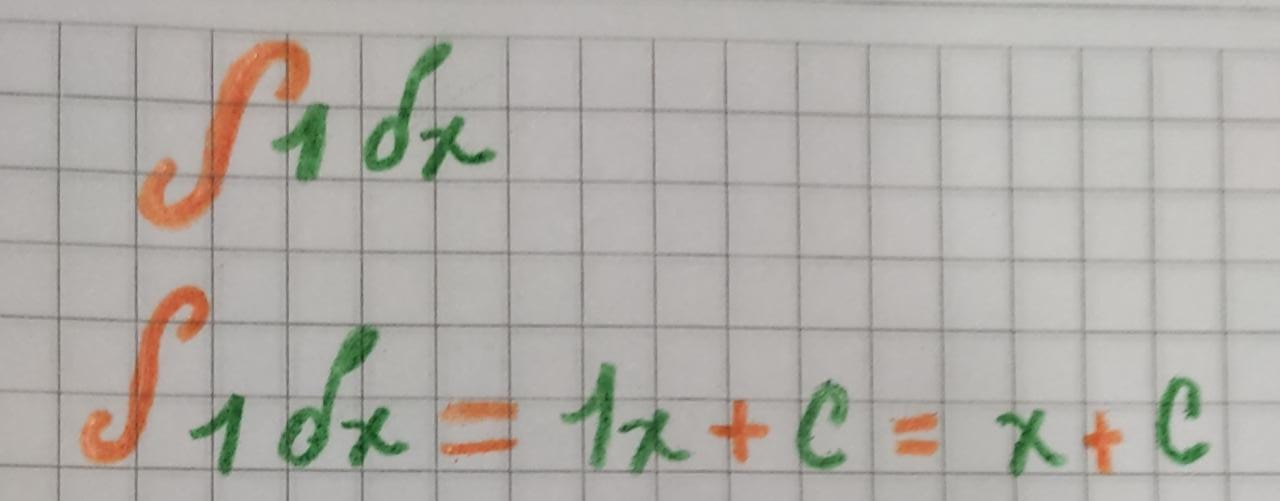 ∫1 dx
∫1 dx = 1x + C = x + C